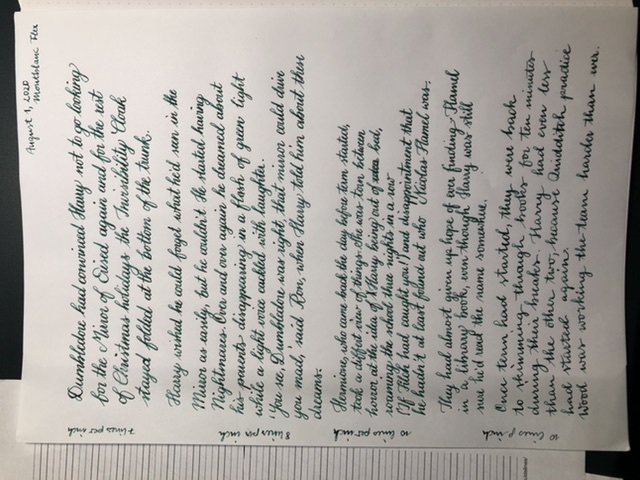 August 1, 2020
Montblanc
Dumbledore had convinced Harry not to go looking
for the Mirror of Erised again and for the rest
of Christmas holidays the Invisibility Cloak
stayed folded at the bottom of the trunk.
Harry wished he could forget what he'd seen in the
Mirror as easily, but he couldn't. He started having
Nightmares. Over and over again he dreamed about
his parents disappearing in a flash of green light
while a light voice cackled with laughter.
'You see, Dumbledore was right, that mirror could drive
you mad,' said Ron, when Harry told him about these
dreams.
Hermione, who came back the day before term started,
took a different view of things. She was torn between
horror at the idea of Harry being out of bed,
roaming the school three nights in a row
('If Filch had caught you!') and disappointment that
he hadn't at least found out who Nicolas Flamel was.
They had almost given up hope of ever finding Flamel
in a library book, even though Harry was still
sure he'd read the name somewhere.
Once term had started, they were back
to skimming through books for ten minutes
during their breaks. Harry had even less
than the other two, because Quidditch practice
had started again.
Wood was working the team harder than ever.
7 lines per inch
8 lines per inch
10 lines per inch
10 lines p inch